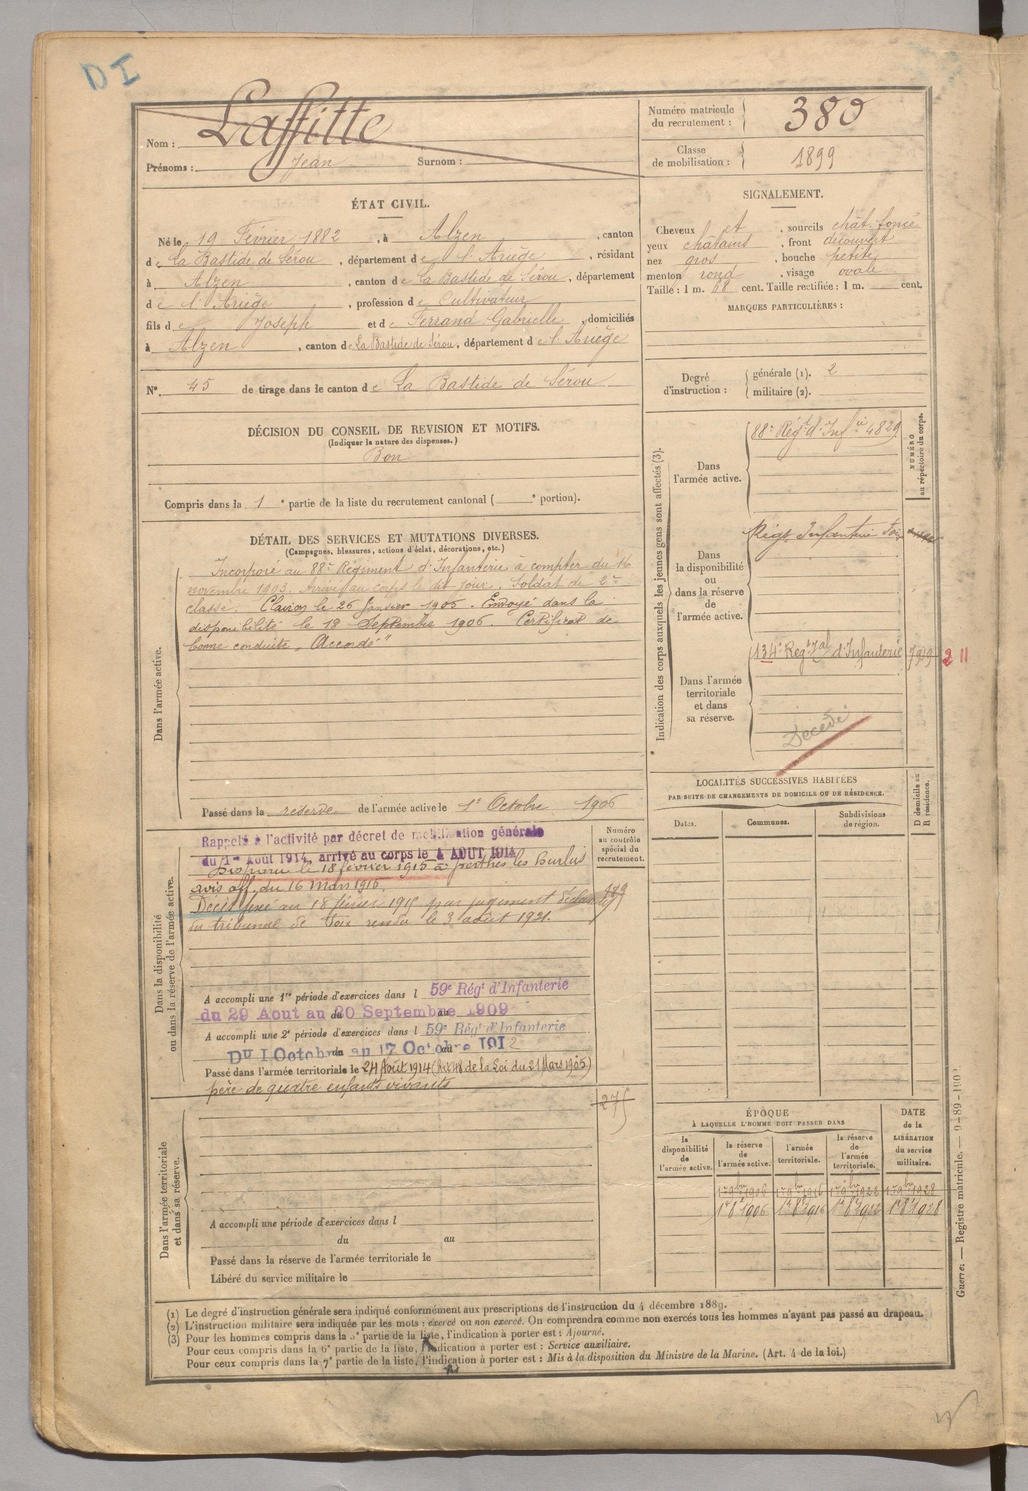 DI
Nom : Laffitte
Prénoms : Jean Surnom :
Numéro matricule du recrutement : 380
Classe de mobilisation : 1899
ÉTAT CIVIL.
Né le 19 Février 1882, à Alzen, canton
de La Bastide de Sérou, département de l'Ariège, résidant
à Alzen, canton de La Bastide de Sérou, département
de l'Ariège, profession de Cultivateur
fils de Joseph et de Ferrand Gabrielle, domiciliés
à Alzen, canton de La Bastide de Sérou, département de l'Ariège
N° 45 de tirage dans le canton de La Bastide de Sérou
SIGNALEMENT.
Cheveux et, sourcils chât. foncé
yeux châtains, front découvert
nez gros, bouche petite
menton rond, visage ovale
Taille : 1 m. 68 cent. Taille rectifiée : 1 m. cent.
MARQUES PARTICULIÈRES :
Degré d'instruction : générale (1). 2
militaire (2).
DÉCISION DU CONSEIL DE REVISION ET MOTIFS.
(Indiquer la nature des dispenses.)
Bon
Compris dans la 1e partie de la liste du recrutement cantonal ( e portion).
DÉTAIL DES SERVICES ET MUTATIONS DIVERSES.
(Campagnes, blessures, actions d'éclat, décorations, etc.)
Dans l'armée active.
Incorporé au 88e Régiment d'Infanterie à compter du 16
novembre 1903. Arrivé au corps le dit jour. Soldat de 2e
classe. Clairon le 26 Janvier 1905. Envoyé dans la
disponibilité le 18 Septembre 1906. Certificat de
bonne conduite "Accordé"
Passé dans la réserve de l'armée active le 1er Octobre 1906
Indication des corps auxquels les jeunes gens sont affectés (3).
NUMÉRO au répertoire du corps.
Dans l'armée active.
88e Régt d'Infie 4829
Dans la disponibilité ou dans la réserve de l'armée active.
Régt Infanterie Foix
Dans l'armée territoriale et dans sa réserve.
134e Régt Tal d'Infanterie 7919 2 11
Décédé
LOCALITÉS SUCCESSIVES HABITÉES
PAR SUITE DE CHANGEMENTS DE DOMICILE OU DE RÉSIDENCE.
Dates.
Communes.
Subdivisions de région.
D domicile ou R résidence.
Dans la disponibilité ou dans la réserve de l'armée active.
Numéro au contrôle spécial du recrutement.
Rappelé à l'activité par décret de mobilisation générale
du 1er Août 1914, arrivé au corps le 4 AOUT 1914
Disparu le 18 février 1915 à Perthes les Hurlus
avis off. du 16 mars 1915.
Décès fixé au 18 février 1915 par jugement déclaratif
du tribunal de Foix rendu le 3 août 1921.
A accompli une 1re période d'exercices dans l 59e Régt d'Infanterie
du 29 Aout au 20 Septembre 1909
A accompli une 2e période d'exercices dans l 59e Régt d'Infanterie
Du 1 Octobre au 17 Octobre 1912
Passé dans l'armée territoriale le 24 Août 1914 (Art 48 de la Loi du 21 Mars 1905)
père de quatre enfants vivants
275
Dans l'armée territoriale et dans sa réserve.
A accompli une période d'exercices dans l
du au
Passé dans la réserve de l'armée territoriale le
Libéré du service militaire le
ÉPOQUE
À LAQUELLE L'HOMME DOIT PASSER DANS
DATE de la LIBÉRATION du service militaire.
la disponibilité de l'armée active.
la réserve de l'armée active.
l'armée territoriale.
la réserve de l'armée territoriale.
1er 8bre 1906 1er 8bre 1916 1er 8bre 1922 1er 8bre 1928
(1) Le degré d'instruction générale sera indiqué conformément aux prescriptions de l'instruction du 4 décembre 1889.
(2) L'instruction militaire sera indiquée par les mots : exercé ou non exercé. On comprendra comme non exercés tous les hommes n'ayant pas passé au drapeau.
(3) Pour les hommes compris dans la 5e partie de la liste, l'indication à porter est : Ajourné.
Pour ceux compris dans la 6e partie de la liste, l'indication à porter est : Service auxiliaire.
Pour ceux compris dans la 7e partie de la liste, l'indication à porter est : Mis à la disposition du Ministre de la Marine. (Art. 4 de la loi.)
Guerre. — Registre matricule. — 9-89-1902.